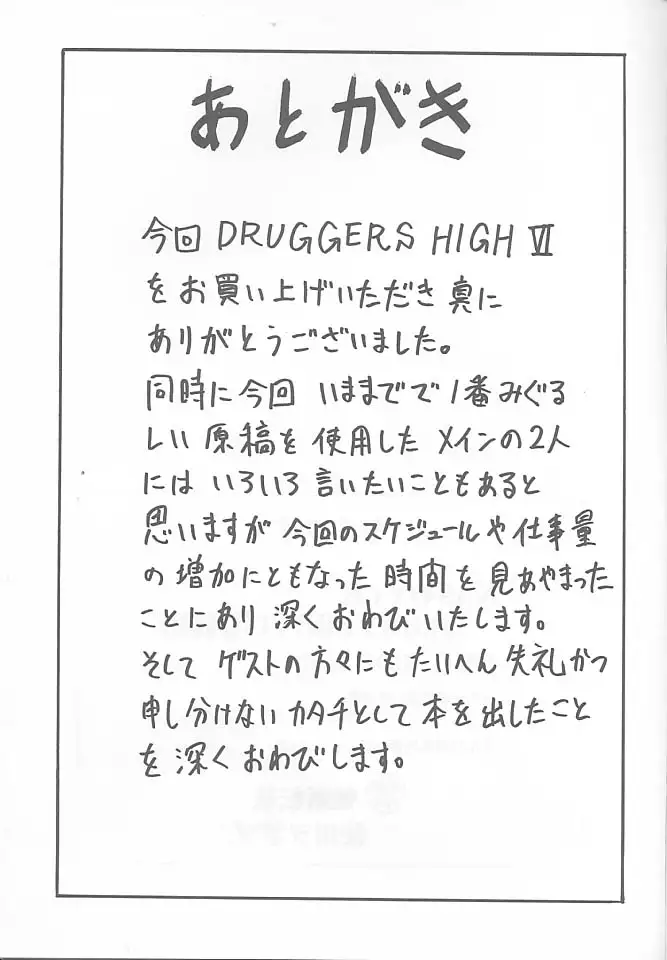 あとがき
今回 DRUGGERS HIGH Ⅵ
をお買い上げいただき 真に
ありがとうございました。
同時に今回 いままでで1番みぐる
しい 原稿を 使用した メインの2人
には いろいろ 言いたいこともあると
思いますが 今回のスケジュールや仕事量
の 増加にともなった 時間を 見あやまった
ことにあり 深く おわび いたします。
そして ゲストの方々にも たいへん 失礼かつ
申し分けない カタチとして 本を 出したこと
を 深く おわびします。